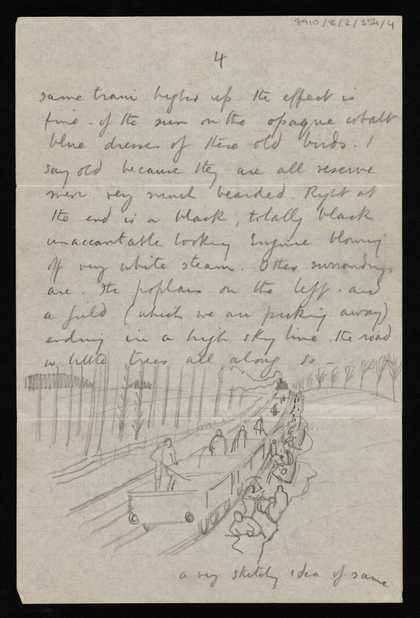 8910/2/2/321/4
4
same train higher up. The effect is
fine. of the sun on the opaque cobalt
blue dresses of these old birds. I
say old because they are all reserve
men very much bearded. Right at
the end is a black, totally black
unaccountable looking Engine blowing
off very white steam. Other surroundings
are. the poplars on the left. and
a field (which we are picking away)
ending in a high sky line the road
w little trees all along so
a very sketchy idea of same